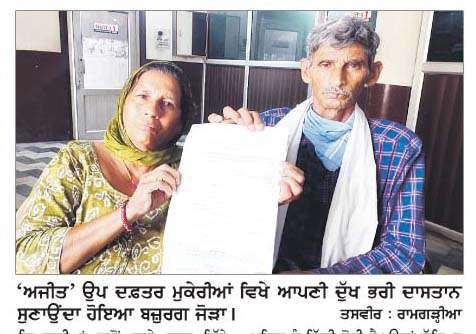 ‘ਅਜੀਤ’ ਉਪ ਦਫ਼ਤਰ ਮੁਕੇਰੀਆਂ ਵਿਖੇ ਆਪਣੀ ਦੁੱਖ ਭਰੀ ਦਾਸਤਾਨ
ਸੁਣਾਉਂਦਾ ਹੋਇਆ ਬਜ਼ੁਰਗ ਜੋੜਾ। ਤਸਵੀਰ : ਰਾਮਗੜ੍ਹੀਆ